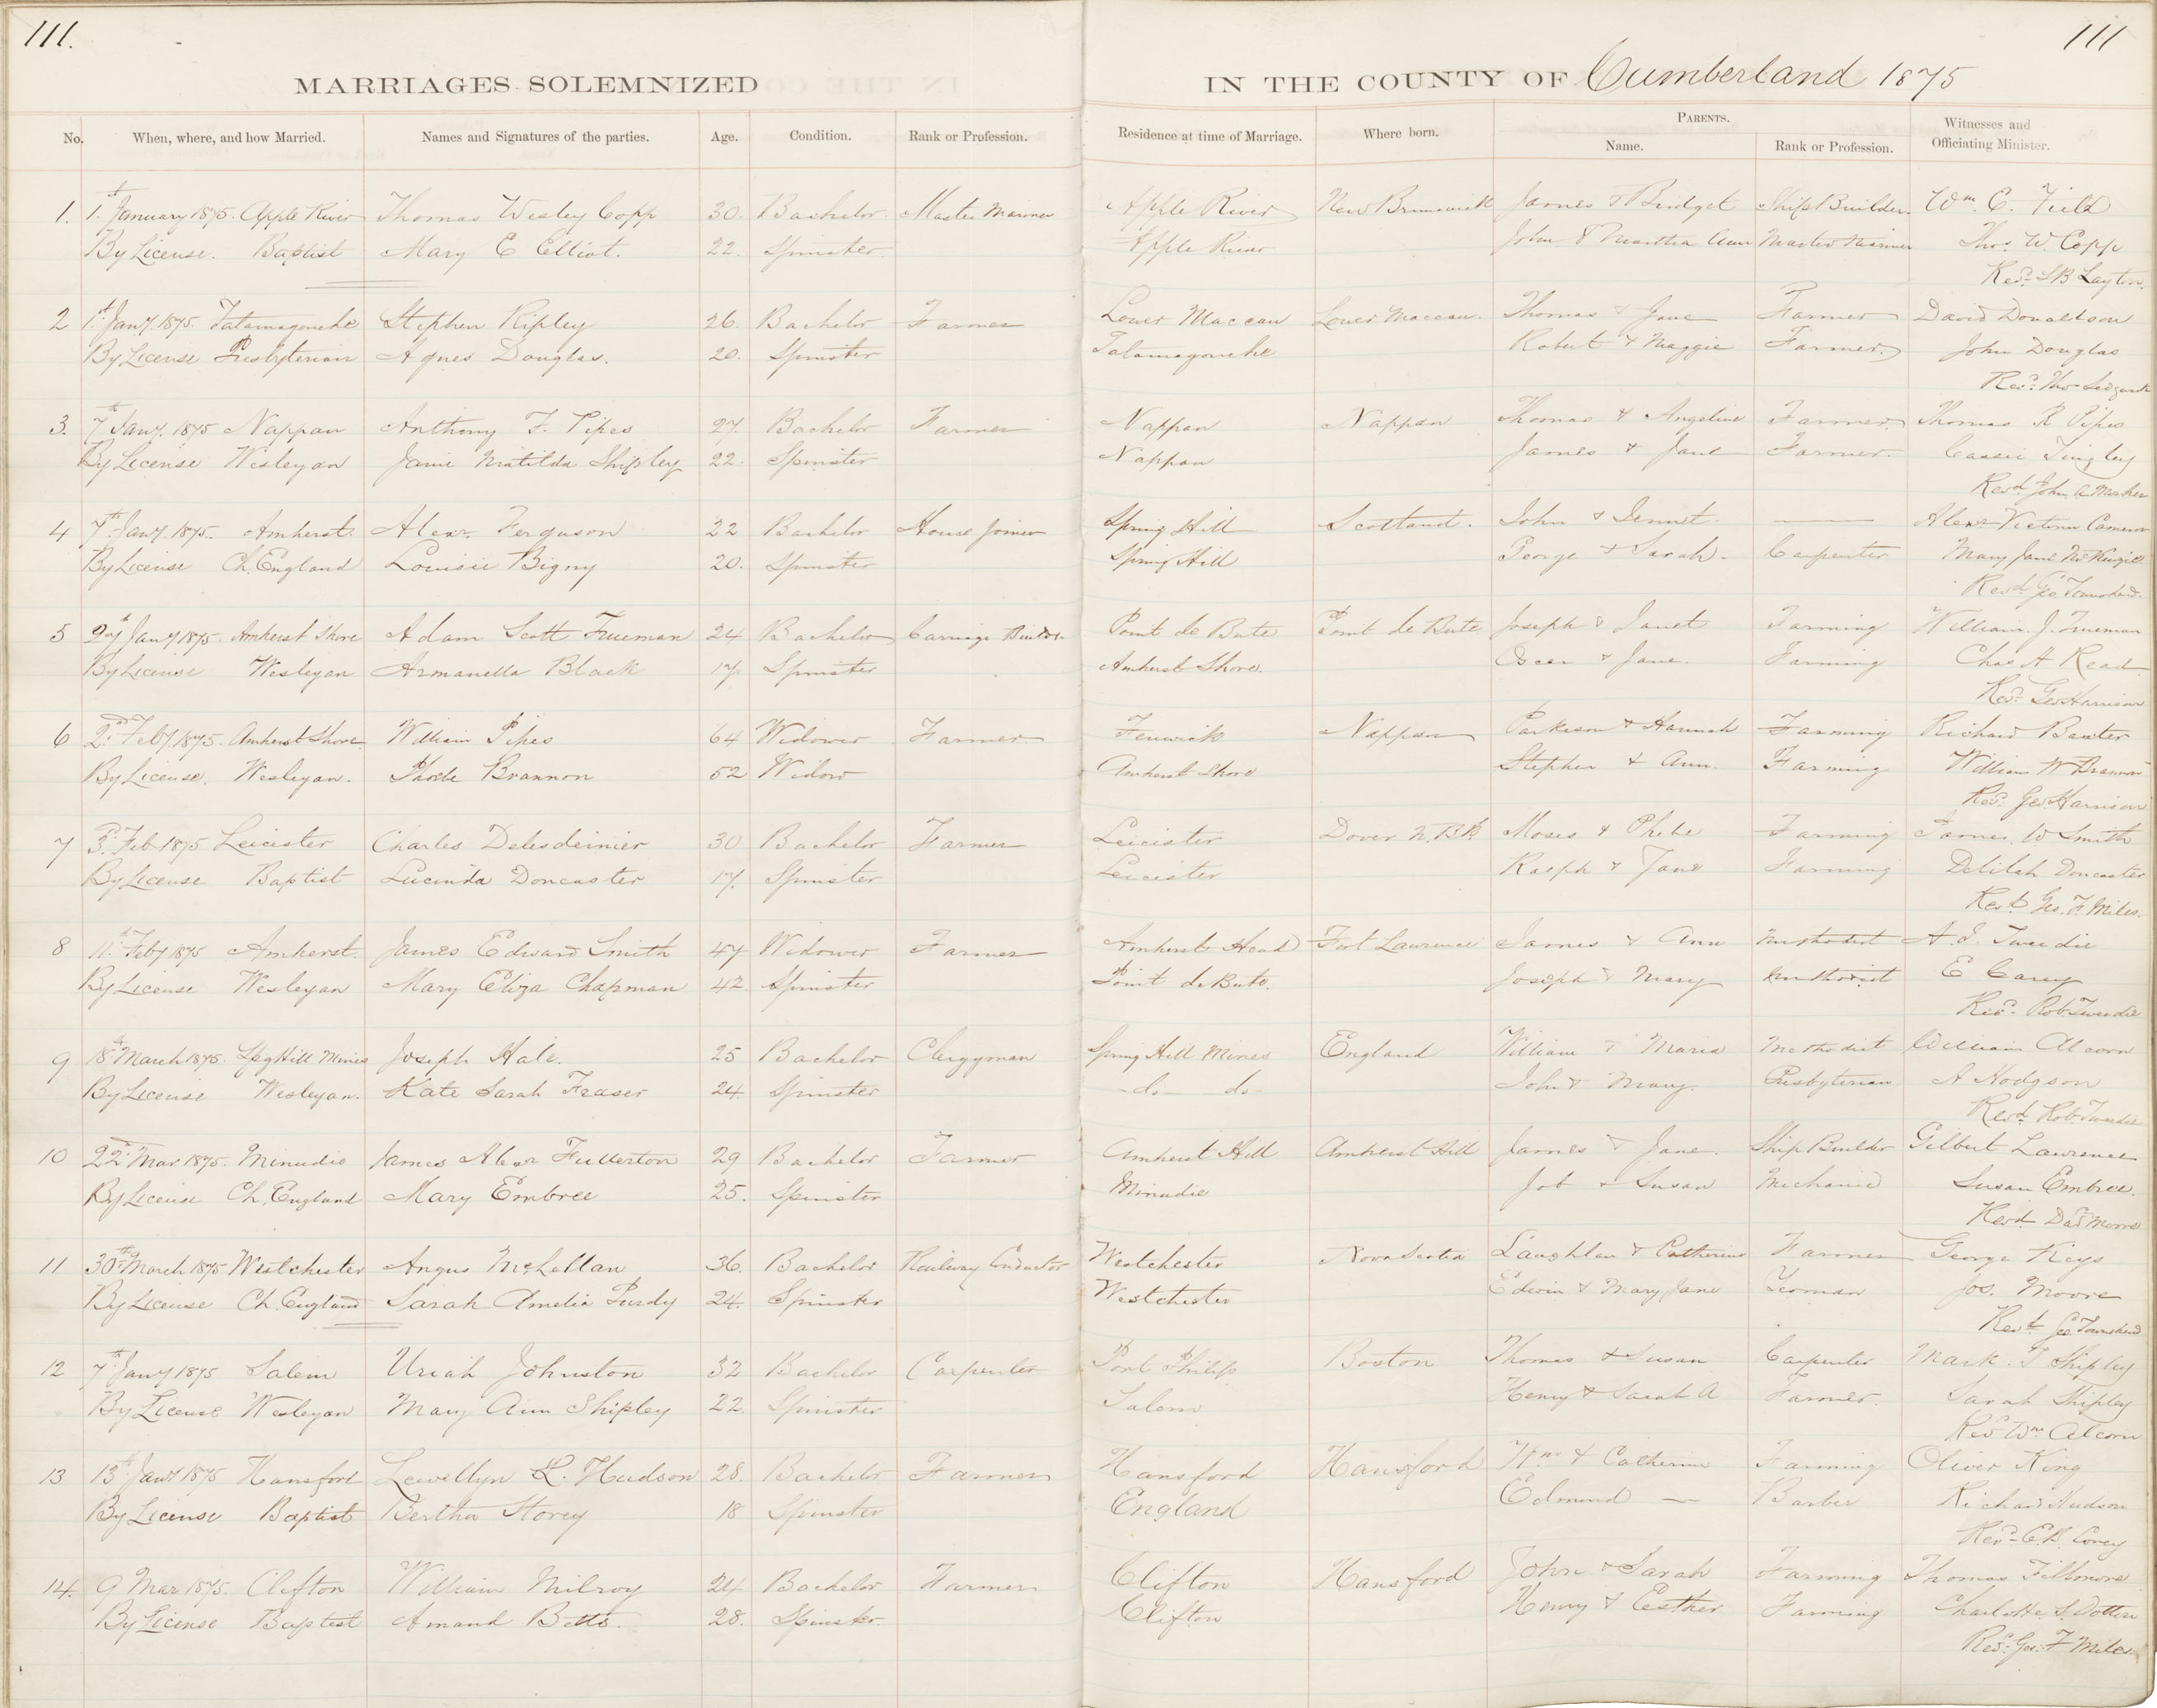 111.
111
MARRIAGES SOLEMNIZED
IN THE COUNTY OF Cumberland 1875
No. When, where, and how Married. Names and Signatures of the parties. Age. Condition. Rank or Profession. Residence at time of Marriage. Where born. PARENTS. Name. Rank or Profession. Witnesses and Officiating Minister.
1. 1st January 1875. Apple River Thomas Wesley Copp 30. Bachelor Master Mariner Apple River New Brunswick James & Bridget Ship Builder Wm. C. Field
By License. Baptist Mary E Elliot. 22. Spinster Apple River John & Martha Ann Master Mariner Thos. W. Copp
Revd. Layton.
2 1st Jany. 1875. Tatamagouche Stephen Ripley 26. Bachelor Farmer Lower Maccan Lower Maccan. Thomas & Jane Farmer David Donaldson
By License Presbyterian Agnes Douglas. 20. Spinster Tatamagouche Robert & Maggie Farmer John Douglas
Revd. Thos Sedgwick
3. 7th Jany. 1875 Nappan Anthony F. Pipes 27. Bachelor Farmer Nappan Nappan Thomas & Angeline Farmer Thomas R Pipes
By License Wesleyan Jane Matilda Shipley 22. Spinster Nappan James & Jane Farmer. Cassie Tingley
Revd. John A Mosher
4 7th Jany. 1875. Amherst. Alexr. Ferguson 22 Bachelor House Joiner Spring Hill Scotland. John & Jennet Alexr Cameron
By License Ch. England Louisie Bigny 20. Spinster Spring Hill George & Sarah. Carpenter Mary Jane McKenzie
Revd. Geo Townshend.
5 27th Jany 1875. Amherst Shore Adam Scott Trueman 24 Bachelor Carriage Builder Point de Bute Point de Bute Joseph & Janet Farming William J. Trueman
By License Wesleyan Armanella Black 17. Spinster Amherst Shore. & Jane. Farming Chas A Read
Revd. Geo Harrison
6 2nd Feby. 1875. Amherst Shore William Pipes 64 Widower Farmer Fenwick Nappan & Hannah Farming Richard Baxter
By License. Wesleyan. Phoebe Brannon 52 Widow Amherst Shore Stephen & Ann. Farming William W Brannon
Revd. Geo. Harrison
7 3rd Feb 1875 Leicister Charles Delesdeinier 30 Bachelor Farmer Leicister Dover N.B. Moses & Phebe Farming James W Smith
By License Baptist Lucinda Doncaster 17. Spinster Leicister Ralph & Jane Farming Delilah Doncaster
Revd. Geo. F. Miles.
8 11th Feby 1875 Amherst. James Edward Smith 47 Widower Farmer Amherst Head Fort Lawrence James & Ann Methodist A. J. Tweedie
By License Wesleyan Mary Eliza Chapman 42. Spinster Point de Bute. Joseph & Mary Methodist E Carey
Revd. Rob Tweedie
9 18th March 1875. Spg Hill Mines Joseph Hale. 25 Bachelor Clergyman Spring Hill Mines England William & Maria Methodist William Alcorn
By License Wesleyan. Kate Sarah Fraser 24. Spinster -do- do- John & Mary. Presbyterian A Hodgson
Revd. Rob Tweedie
10 22nd Mar 1875. Minudie James Alexr Fullerton 29 Bachelor Farmer Amherst Hill Amherst Hill James & Jane. Ship Builder Gilbert Lawrence
By License Ch. England Mary Embree 25. Spinster Minudie Job & Susan Mechanic Susan Embree.
Revd. Moore
11 30th March 1875 Westchester Angus McLellan 36. Bachelor Railway Conductor Westchester Nova Scotia Laughlan & Catherine Farmer George Keys
By License Ch. England Sarah Amelia Purdy 24. Spinster Westchester Edwin & Mary Jane Yeoman Jos. Moore
Revd. Geo Townshend
12 7th Jany 1875 Salem Uriah Johnston 32 Bachelor Carpenter Port Philip Boston Thomas & Susan Carpenter Mark. T Shipley
By License Wesleyan Mary Ann Shipley 22. Spinster Salem Henry & Sarah A Farmer. Sarah Shipley
Revd Wm Alcorn
13 13th Jany 1875 Hansford Lewellyn L. Hudson 28. Bachelor Farmer Hansford Hansford Wm & Catherine Farming Oliver King
By License Baptist Bertha Storey 18 Spinster England Edmond — Barber Richard Hudson
Revd. Corey
14. 9 Mar 1875. Clifton William Milroy 24 Bachelor Farmer Clifton Hansford John & Sarah Farming Thomas Fillmore
By License Baptist Amand Betts. 28. Spinster. Clifton Henry & Esther Farming Charlotte S.
Revd. Geo. F Miles.